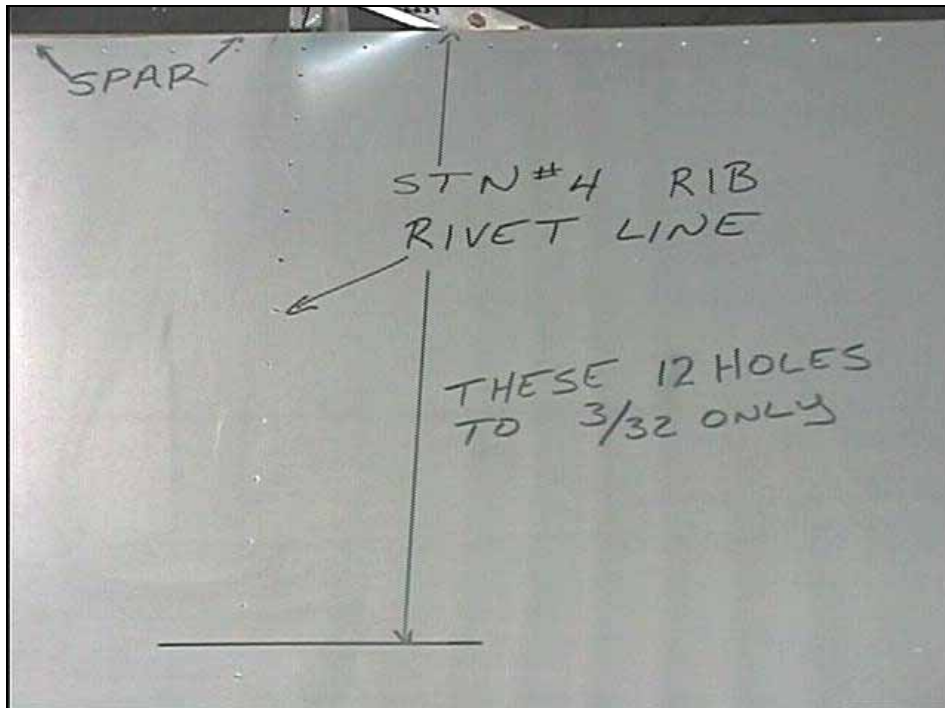 SPAR
STN#4 RIB
RIVET LINE
THESE 12 HOLES
TO 3/32 ONLY